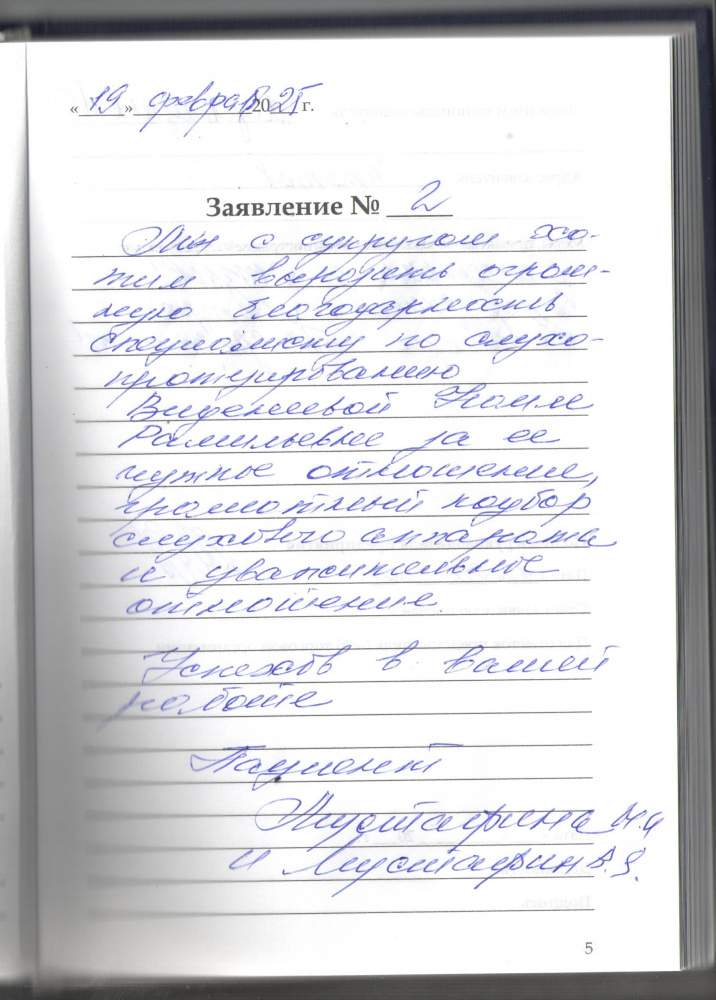 « 19 » февраля 2025 г.
Заявление № 2
Мы с супругом хо-
тим выразить огром-
ную благодарность
специалисту по слухо-
протезированию
Рамильевне за ее
чуткое отношение,
грамотный подбор
слухового аппарата
и уважительное
отношение.
Успехов в вашей
работе
Пациент
Мустафина
и Мустафин
5